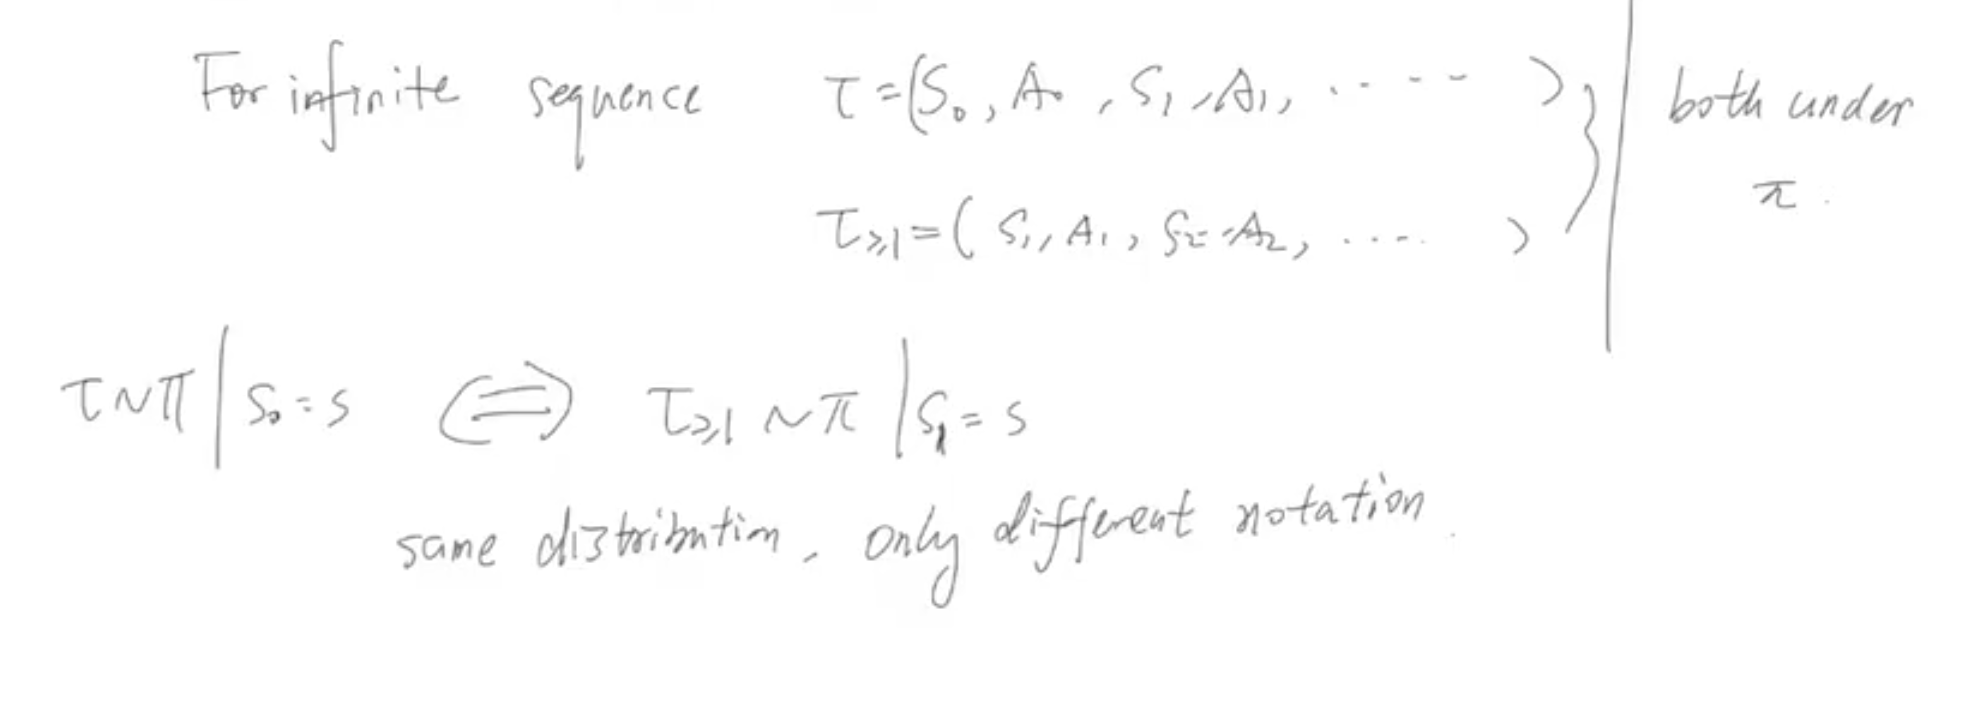 For infinite sequence τ = (S₀, A₀, S₁, A₁, ..... ) } | both under
τ≥₁ = ( S₁, A₁, S₂, A₂, .... ) π.
τ∼π | S₀ = s ⟺ τ≥₁ ∼ π | S₁ = s
same distribution, only different notation.